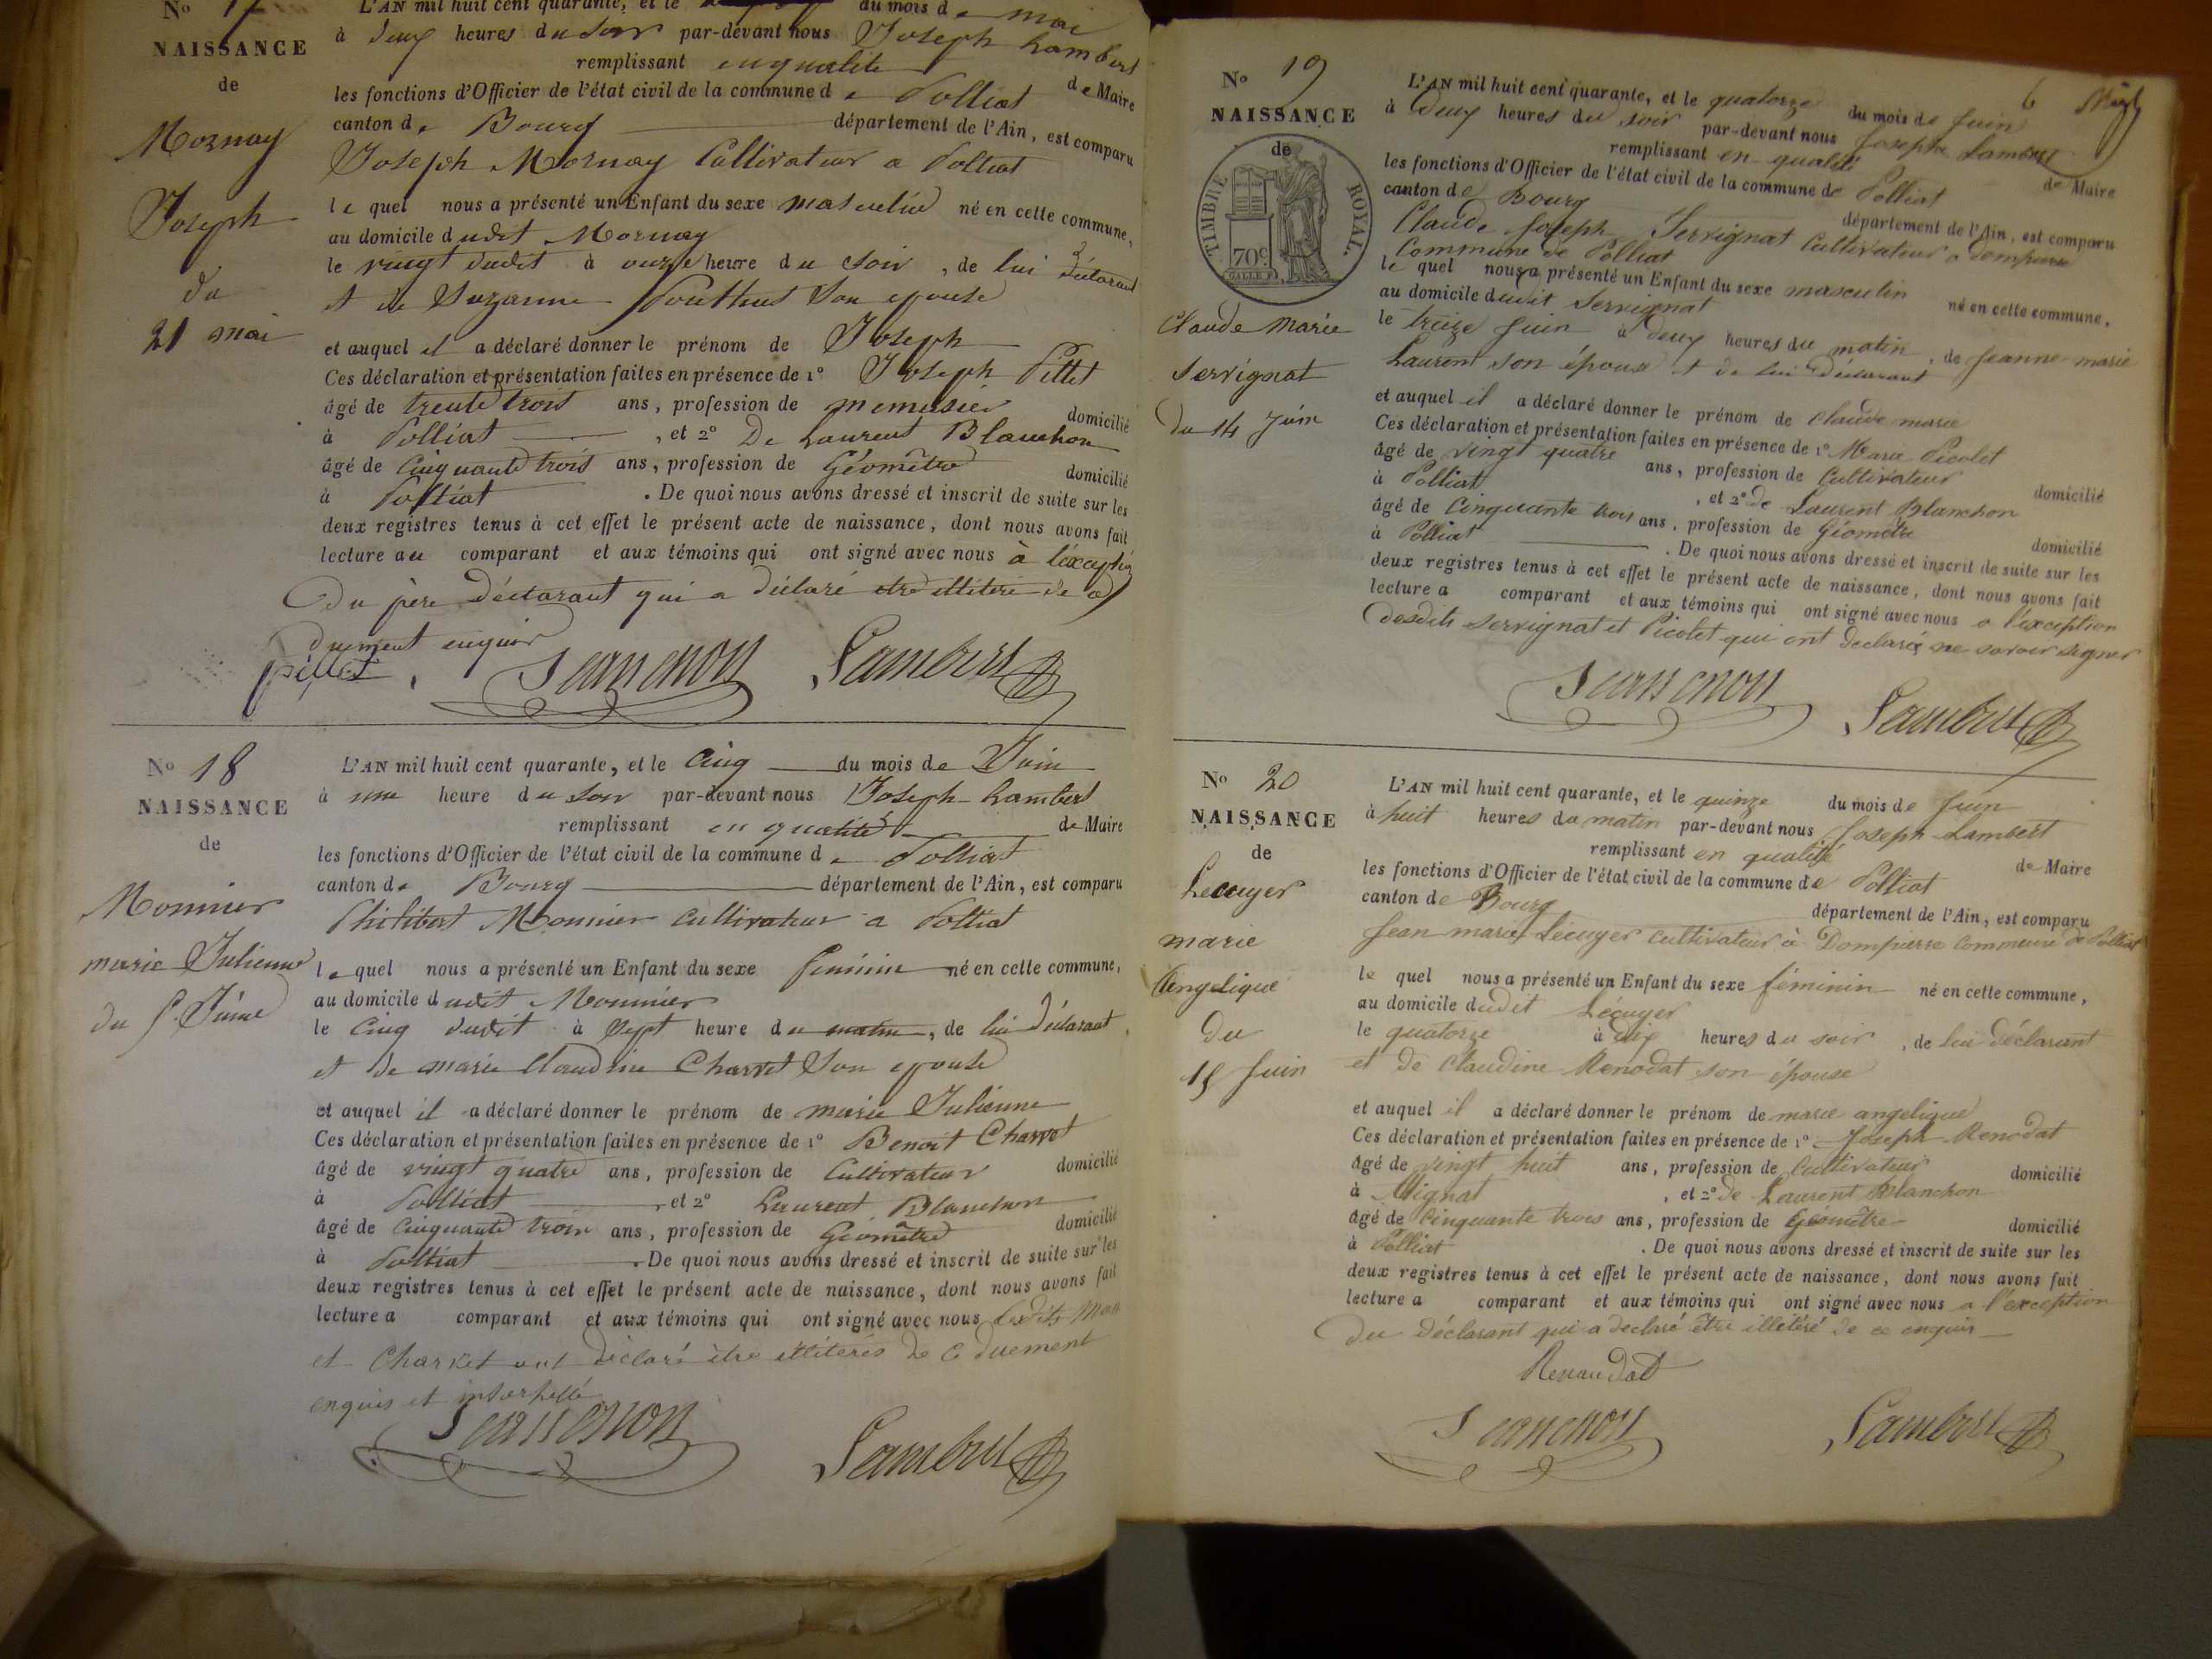 No 17
NAISSANCE
de
Mornay
Joseph
du
21 mai
L'AN mil huit cent quarante, et le du mois de mai
à deux heures du soir par-devant nous Joseph Lambert
remplissant en qualité de Maire
les fonctions d'Officier de l'état civil de la commune de Polliat
canton de Bourg département de l'Ain, est comparu
Joseph Mornay Cultivateur a Polliat
le quel nous a présenté un Enfant du sexe masculin né en cette commune,
au domicile dudit Mornay
le vingt dudit à onze heure du soir, de lui déclarant
et de Suzanne son epouse
et auquel il a déclaré donner le prénom de Joseph
Ces déclaration et présentation faites en présence de 1° Joseph Pillet
âgé de trente trois ans, profession de menusier domicilié
à Polliat, et 2° De Laurent Blanchon
âgé de cinquante trois ans, profession de Géomètre domicilié
à Polliat. De quoi nous avons dressé et inscrit de suite sur les
deux registres tenus à cet effet le présent acte de naissance, dont nous avons fait
lecture au comparant et aux témoins qui ont signé avec nous à l'exception
du père déclarant qui a déclaré etre illitéré de ce
duement enquis
pillet Lambert
No 18
NAISSANCE
de
Monnier
marie Julienne
du 5 Juin
L'AN mil huit cent quarante, et le cinq du mois de Juin
à une heure du soir par-devant nous Joseph Lambert
remplissant en qualité de Maire
les fonctions d'Officier de l'état civil de la commune de Polliat
canton de Bourg département de l'Ain, est comparu
Philibert Monnier cultivateur a Polliat
le quel nous a présenté un Enfant du sexe feminin né en cette commune,
au domicile dudit Monnier
le cinq dudit à sept heure du matin, de lui déclarant
et de marie Claudine Charvet son epouse
et auquel il a déclaré donner le prénom de marie Julienne
Ces déclaration et présentation faites en présence de 1° Benoit Charvet
âgé de vingt quatre ans, profession de Cultivateur domicilié
à Polliat, et 2° Laurent Blanchon
âgé de cinquante trois ans, profession de Géomètre domicilié
à Polliat. De quoi nous avons dressé et inscrit de suite sur les
deux registres tenus à cet effet le présent acte de naissance, dont nous avons fait
lecture a comparant et aux témoins qui ont signé avec nous Lesdits
et Charvet ont déclaré être illitérés de ce duement
enquis et interpellé
Lambert
No 19
NAISSANCE
de
TIMBRE ROYAL
70c.
Claude Marie
Servignat
du 14 Juin
6
L'AN mil huit cent quarante, et le quatorze du mois de Juin
à Deux heures du soir par-devant nous Joseph Lambert
remplissant en qualité de Maire
les fonctions d'Officier de l'état civil de la commune de Polliat
canton de Bourg département de l'Ain, est comparu
Claude Joseph Servignat Cultivateur a Dompierre
Commune de Polliat
le quel nous a présenté un Enfant du sexe masculin né en cette commune,
au domicile dudit Servignat
le treize Juin à deux heures du matin, de Jeanne marie
Laurent son épouse et de lui Déclarant
et auquel il a déclaré donner le prénom de Claude marie
Ces déclaration et présentation faites en présence de 1° Marie Picolet
âgé de vingt quatre ans, profession de Cultivateur domicilié
à Polliat, et 2° de Laurent Blanchon
âgé de Cinquante trois ans, profession de Géomètre domicilié
à Polliat. De quoi nous avons dressé et inscrit de suite sur les
deux registres tenus à cet effet le présent acte de naissance, dont nous avons fait
lecture a comparant et aux témoins qui ont signé avec nous a l'exception
desdits Servignat et Picolet qui ont déclaré ne savoir signer
Lambert
No 20
NAISSANCE
de
Lecuyer
marie
Angelique
du
15 Juin
L'AN mil huit cent quarante, et le quinze du mois de Juin
à huit heures du matin par-devant nous Joseph Lambert
remplissant en qualité de Maire
les fonctions d'Officier de l'état civil de la commune de Polliat
canton de Bourg département de l'Ain, est comparu
Jean marie Lecuyer cultivateur à Dompierre commune de Polliat
le quel nous a présenté un Enfant du sexe féminin né en cette commune,
au domicile dudit Lécuyer
le quatorze à dix heures du soir, de lui déclarant
et de Claudine Renodat son épouse
et auquel il a déclaré donner le prénom de marie angelique
Ces déclaration et présentation faites en présence de 1° Joseph Renodat
âgé de vingt huit ans, profession de Cultivateur domicilié
à, et 2° de Laurent Blanchon
âgé de cinquante trois ans, profession de Géomètre domicilié
à Polliat. De quoi nous avons dressé et inscrit de suite sur les
deux registres tenus à cet effet le présent acte de naissance, dont nous avons fait
lecture a comparant et aux témoins qui ont signé avec nous a l'exception
du Déclarant qui a declaré être illetéré de ce enquis
Renaudat
Lambert